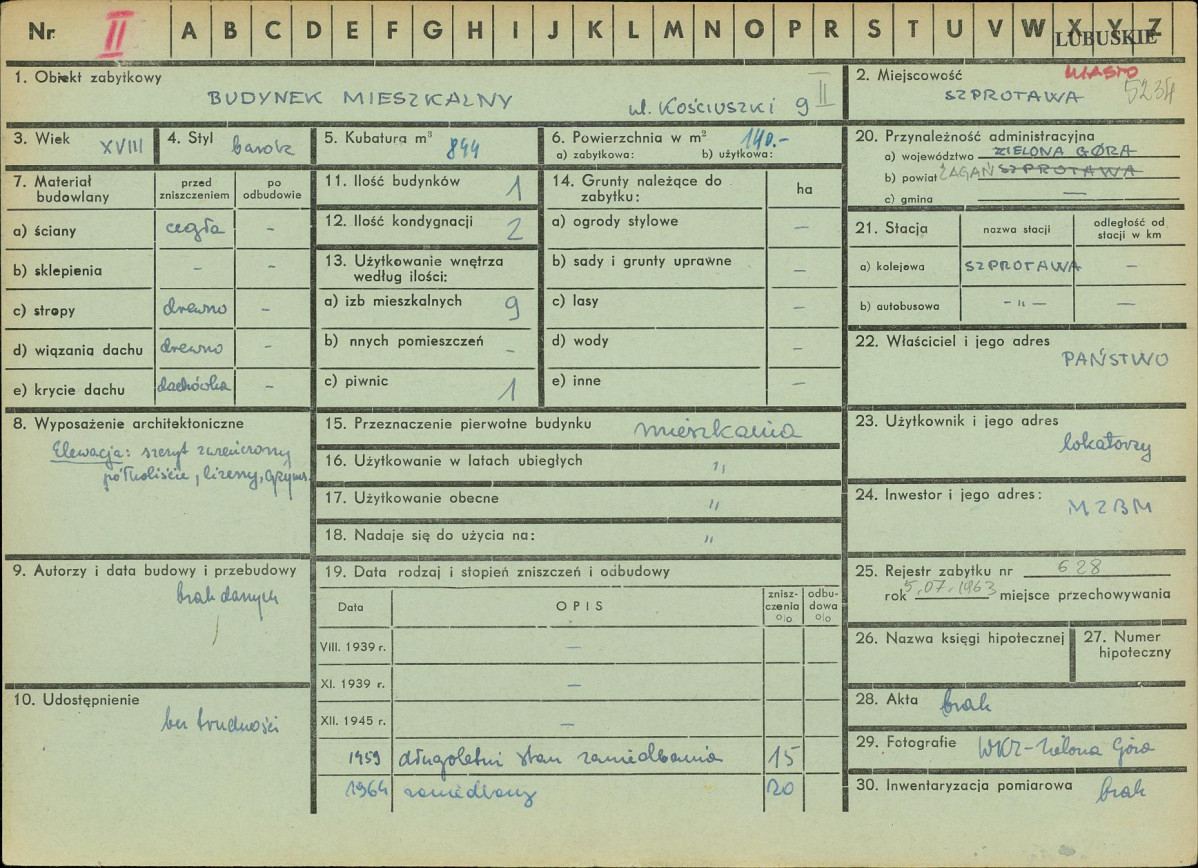 Nr. II A B C D E F G H I J K L M N O P R S T U V W X Y Z
LUBUSKIE
1. Obiekt zabytkowy
BUDYNEK MIESZKALNY ul. KOŚCIUSZKI 9 II
2. Miejscowość MIASTO
SZPROTAWA 5234
3. Wiek XVIII
4. Styl barok
5. Kubatura m³ 844
6. Powierzchnia w m² 140.-
a) zabytkowa: b) użytkowa:
20. Przynależność administracyjna
a) województwo ZIELONA GÓRA
b) powiat ŻAGAŃ SZPROTAWA
c) gmina —
7. Materiał budowlany
przed zniszczeniem
po odbudowie
a) ściany cegła -
b) sklepienia - -
c) stropy drewno -
d) wiązania dachu drewno -
e) krycie dachu dachówka -
11. Ilość budynków 1
12. Ilość kondygnacji 2
13. Użytkowanie wnętrza
według ilości:
a) izb mieszkalnych 9
b) nnych pomieszczeń -
c) piwnic 1
14. Grunty należące do
zabytku:
ha
a) ogrody stylowe —
b) sady i grunty uprawne —
c) lasy —
d) wody —
e) inne —
21. Stacja
nazwa stacji
odległość od
stacji w km
a) kolejowa SZPROTAWA —
b) autobusowa -"- —
22. Właściciel i jego adres
PAŃSTWO
8. Wyposażenie architektoniczne
Elewacja: szczyt zwieńczony
półkoliście, lizeny, gzyms.
15. Przeznaczenie pierwotne budynku mieszkania
16. Użytkowanie w latach ubiegłych "
17. Użytkowanie obecne "
18. Nadaje się do użycia na: "
23. Użytkownik i jego adres
lokatorzy
24. Inwestor i jego adres:
MZBM
9. Autorzy i data budowy i przebudowy
brak danych
10. Udostępnienie
bez trudności
19. Data rodzaj i stopień zniszczeń i odbudowy
Data
OPIS
znisz-
czenia
%
odbu-
dowa
%
VIII. 1939 r. —
XI. 1939 r. —
XII. 1945 r. —
1959 długoletni stan zaniedbania 15
1964 zaniedbany 20
25. Rejestr zabytku nr 628
rok 5.07.1963 miejsce przechowywania
26. Nazwa księgi hipotecznej
27. Numer
hipoteczny
28. Akta brak
29. Fotografie WKZ-Zielona Góra
30. Inwentaryzacja pomiarowa brak